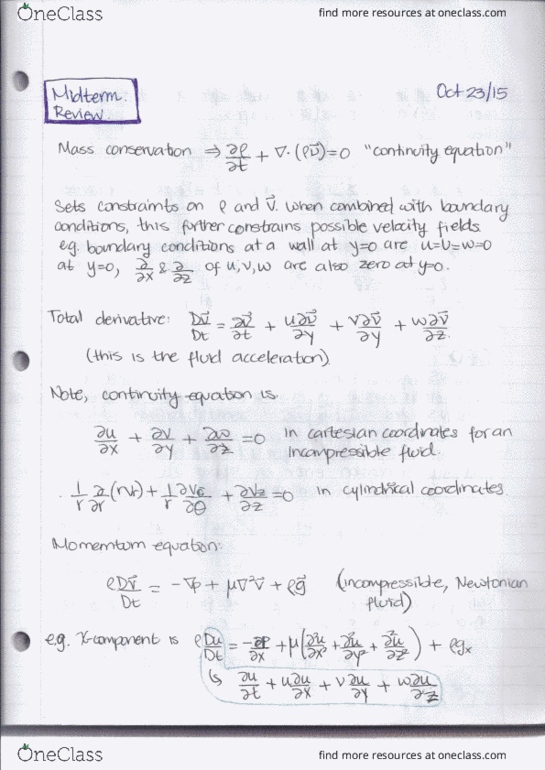 OneClass find more resources at oneclass.com
Midterm Review Oct 23/15
Mass conservation ⇒ ∂ρ/∂t + ∇·(ρv⃗)=0 "continuity equation"
Sets constraints on ρ and v⃗. When combined with boundary
conditions, this further constrains possible velocity fields
e.g. boundary conditions at a wall at y=0 are u=v=w=0
at y=0, ∂/∂x & ∂/∂z of u,v,w are also zero at y=0.
Total derivative: Dv⃗/Dt = ∂v⃗/∂t + u∂v⃗/∂y + v∂v⃗/∂y + w∂v⃗/∂z.
(this is the fluid acceleration)
Note, continuity equation is
∂u/∂x + ∂v/∂y + ∂w/∂z = 0 in cartesian coordinates for an
incompressible fluid.
1/r ∂/∂r (rvr) + 1/r ∂vθ/∂θ + ∂vz/∂z = 0 in cylindrical coordinates
Momentum equation:
ρDv⃗/Dt = -∇p + μ∇²v⃗ + ρg⃗ (incompressible, Newtonian
fluid)
e.g. x-component is ρDu/Dt = -∂p/∂x + μ(∂²u/∂x² + ∂²u/∂y² + ∂²u/∂z²) + ρgx
↳ ∂u/∂t + u∂u/∂x + v∂u/∂y + w∂u/∂z
OneClass find more resources at oneclass.com